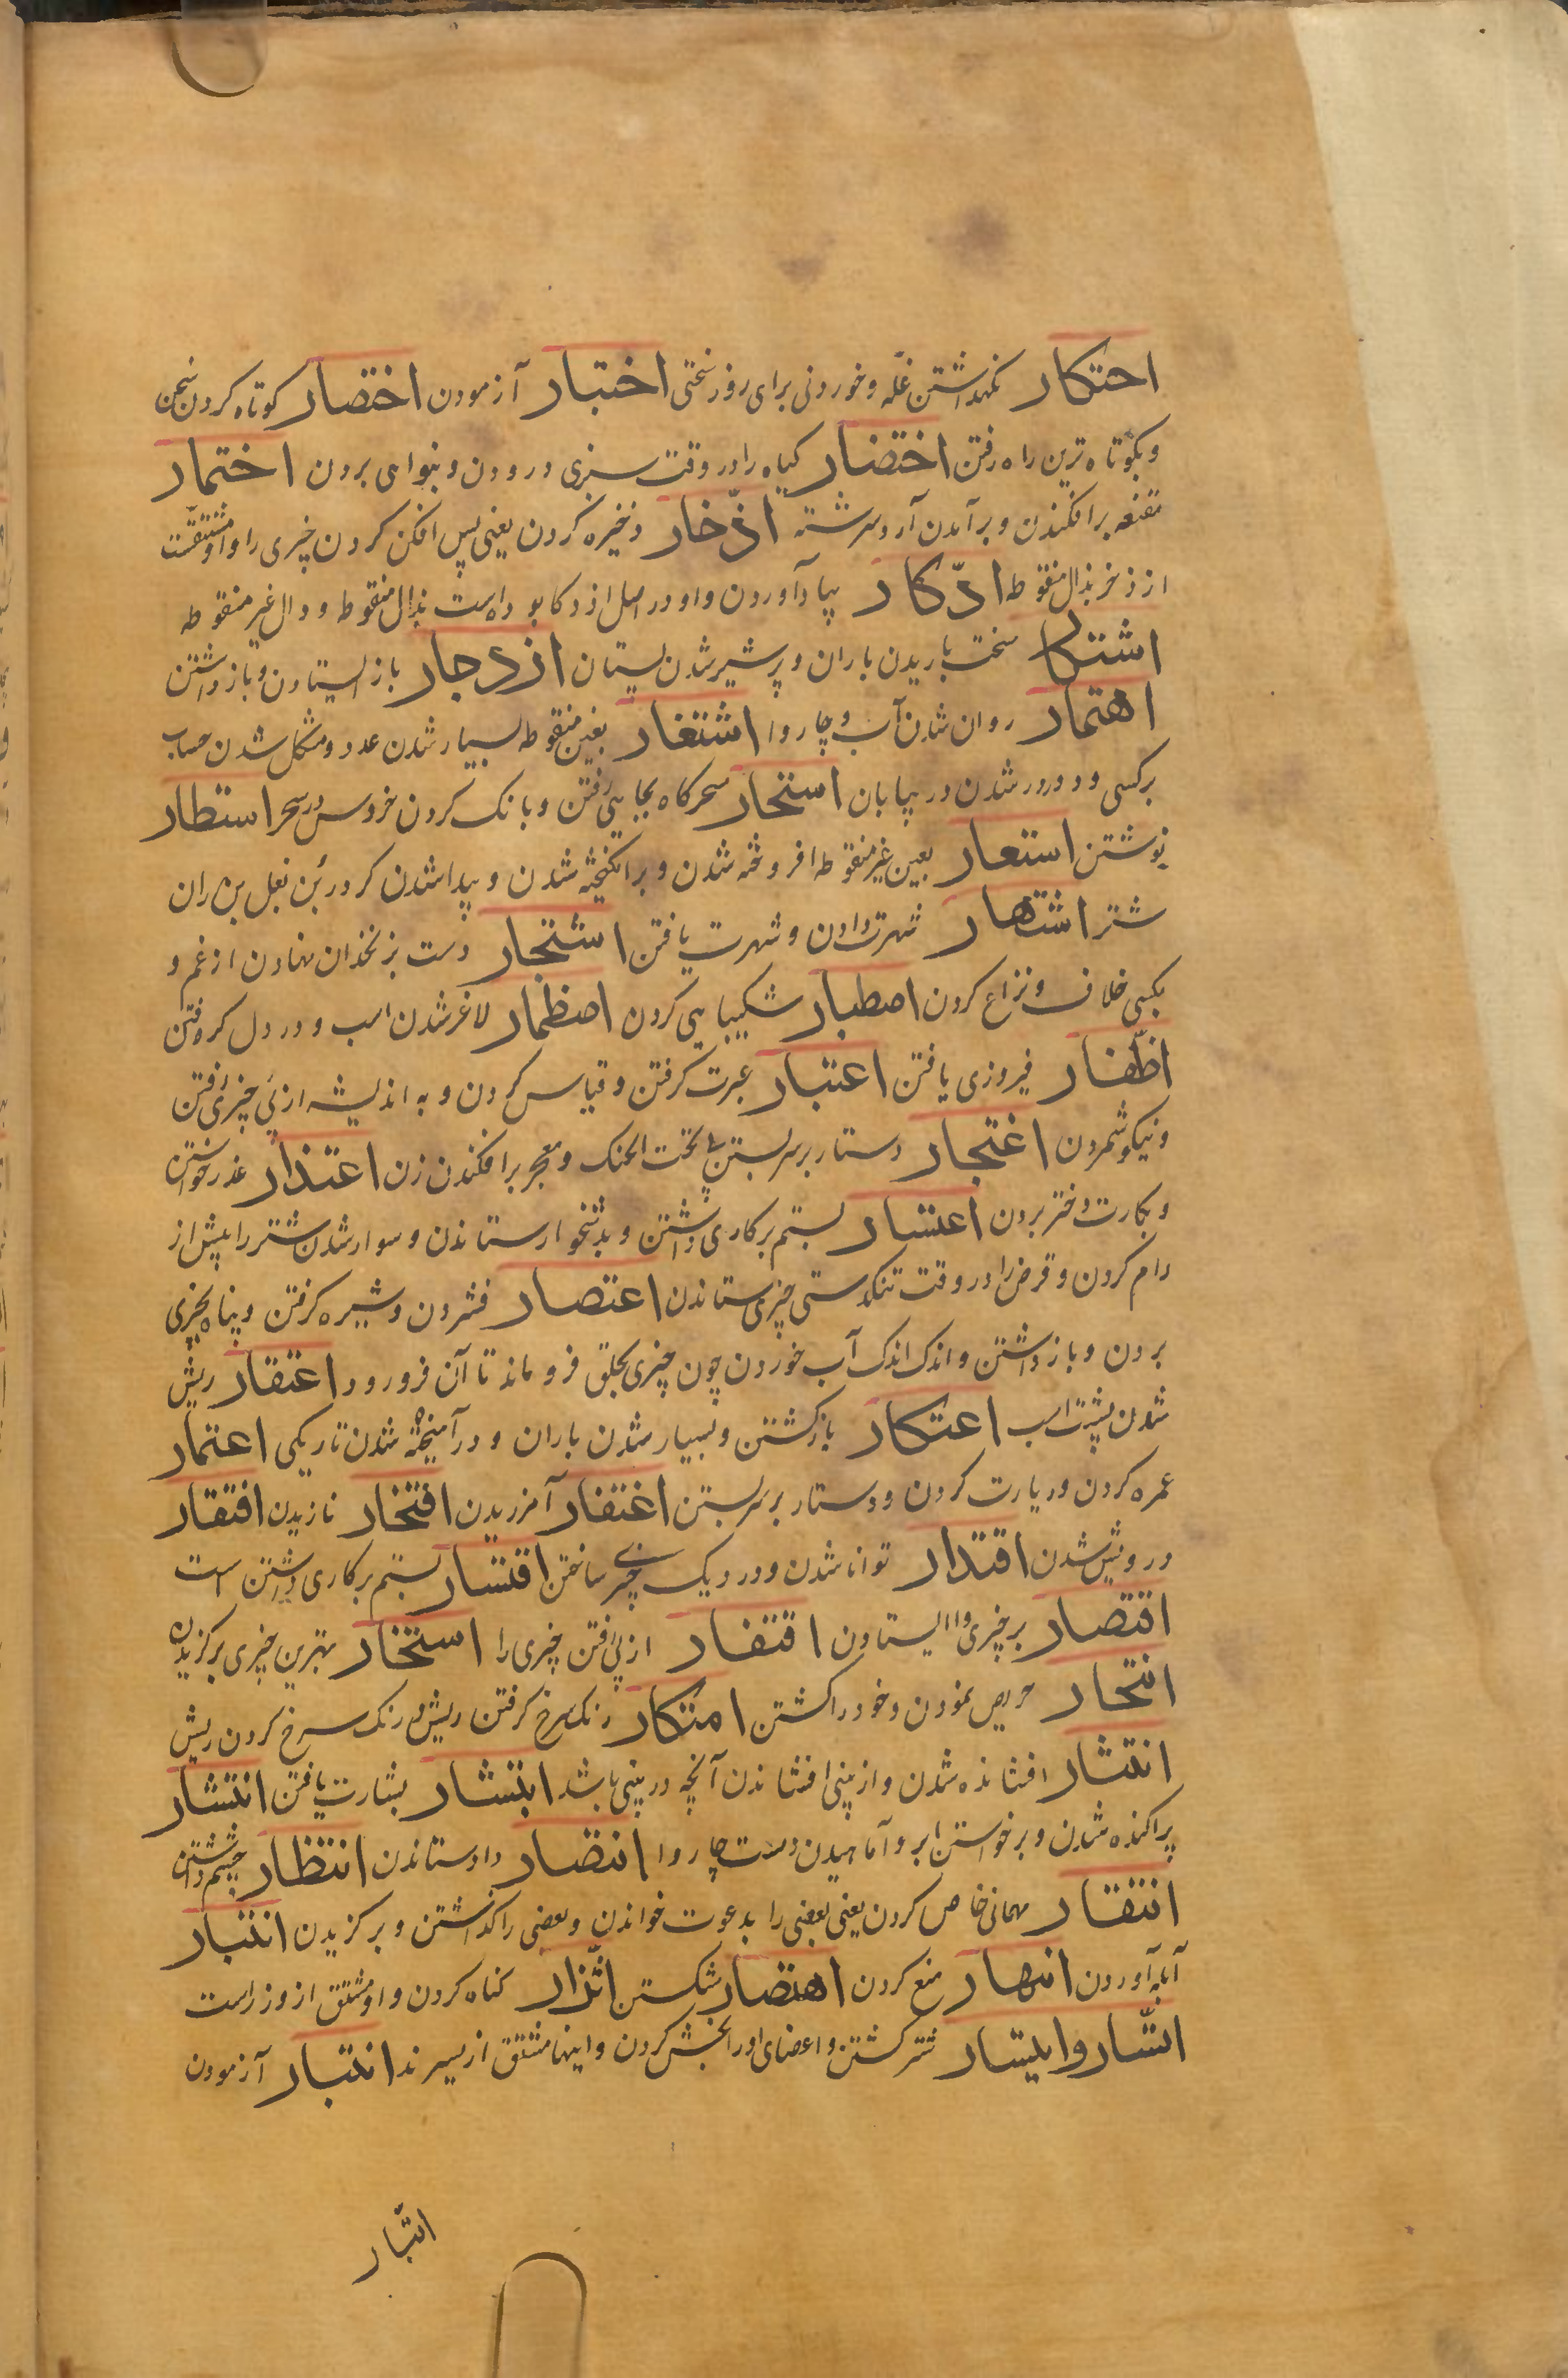 احتکار نکهداشتن غلّه و خوردنی برای روز سختی اختبار آزمودن اختصار کوتاه کردن سخن
و بکوتاه ترین راه رفتن اختضار کیاه را در وقت سبزی درودن و بنوا می بردن اختمار
مقنعه برافکندن و برآمدن آرد سرشته اذّخار ذخیره کردن یعنی پس افکن کردن چیزی را و او مشتقست
از ذخر بذال منقوطه ادّکار بیاد آوردن و او در اصل اذدکار بوده است بذال منقوطه و دال غیر منقوطه
اشتکار سخت باریدن باران و پر شیر شدن پستان ازدجار باز ایستادن و باز داشتن
اهتمار روان شدن آب و چاروا اشتغار بغین منقوطه بسیار شدن عدد و مشکل شدن حساب
برکسی و دور شدن در بیابان استحار سحرکاه بجایی رفتن و بانک کردن خروس در سحر استطار
نوشتن استعار بعین غیر منقوطه افروخته شدن و برانکیخته شدن و پیدا شدن کر در بن بغل بن ران
شتر اشتهار شهرت دادن و شهرت یافتن اشتجار دست بزنخدان نهادن از غم و
بکسی خلاف و نزاع کردن اصطبار شکیبایی کردن اضطمار لاغر شدن اسب و در دل کرفتن
اظّفار فیروزی یافتن اعتبار عبرت کرفتن و قیاس کردن و به اندیشه از پی چیزی رفتن
و نیکو شمردن اعتجار دستار بر سر بستن بی تحت الحنک و معجر برافکندن زن اعتذار عذر خواستن
و بکارت دختر بردن اعتسار بستم برکاری داشتن و بدشخوار ستاندن و سوار شدن شتر را پیش از
رام کردن و قرض را در وقت تنکدستی چیزی ستاندن اعتصار فشردن و شیره کرفتن و پناه بچیزی
بردن و باز داشتن و اندک اندک آب خوردن چون چیزی بحلق فرو ماند تا آن فرو رود اعتقار ریش
شدن پشت اسب اعتکار بازکشتن و بسیار شدن باران و درآمیخته شدن تاریکی اعتمار
عمره کردن و زیارت کردن و دستار بر سر بستن اغتفار آمرزیدن افتخار نازیدن افتقار
درویش شدن اقتدار توانا شدن و در دیک چیزی ساختن اقتسار بستم برکاری داشتن است
اقتصار بر چیزی وا ایستادن اقتفار از پی رفتن چیزی را استخار بهترین چیزی برکزیدن
انتحار حریص نمودن و خود را کشتن امتکار رنک سرخ کرفتن ریش و رنک سرخ کردن ریش
انتثار افشانده شدن و از بینی افشاندن آنچه در بینی باشد ابتشار بشارت یافتن انتشار
پراکنده شدن و برخواستن ابر و آماهیدن دست چاروا انتصار داد ستاندن انتظار چشم داشتن
انتقار مهمانی خاص کردن یعنی بعضی را بدعوت خواندن و بعضی را کذاشتن و برکزیدن انتبار
آبله آوردن انتهار منع کردن اهتصار شکستن اتّزار کناه کردن و او مشتق از وزر است
اتّسار و ایتسار شتر کشتن و اعضای او را بخش کردن و اینها مشتق از یسرند ابتبار آزمودن
اتّبار